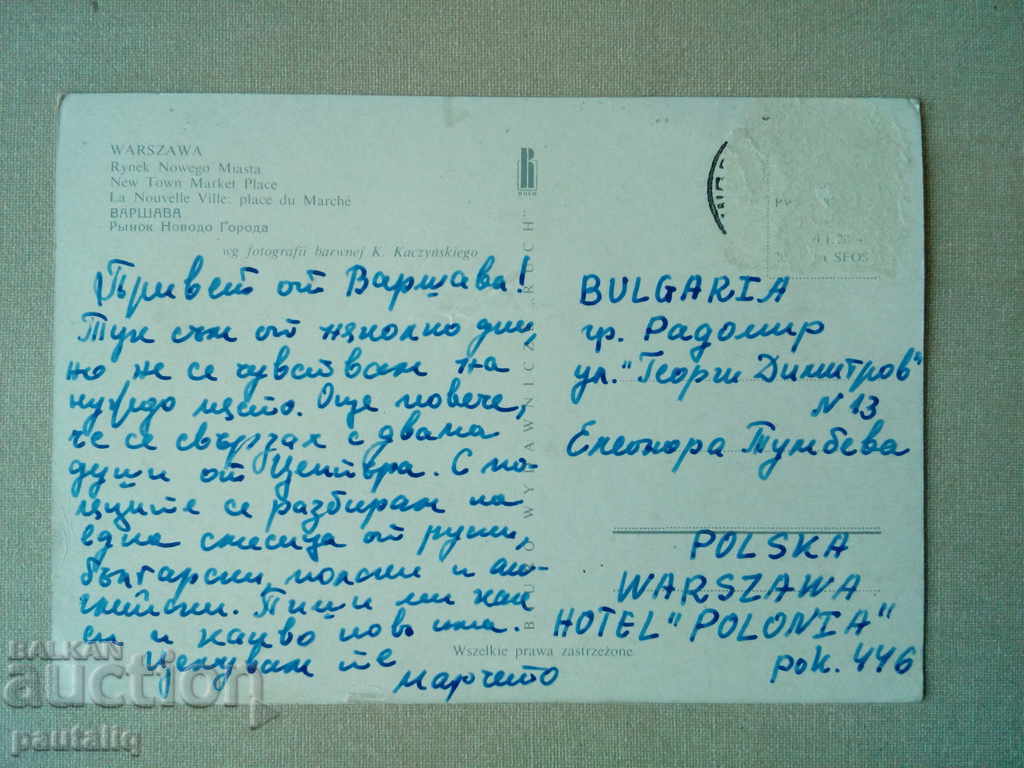 WARSZAWA
Rynek Nowego Miasta
New Town Market Place
La Nouvelle Ville: place du Marché
ВАРШАВА
Рынок Новодо Города
wg fotografii barwnej K. Kaczyńskiego
Привет от Варшава!
Тук съм от няколко дни,
но не се чувствам на
чуждо място. Още повече,
че се свързах с двама
души от Центъра. С по-
лците се разбирам на
една смесица от руски,
български, полски и ан-
глийски. Пиши ми как
си и какво ново има.
Целувам те
Марчето
RUCH
BIURO WYDAWNICZE "RUCH"
BULGARIA
гр. Радомир
ул. "Георги Димитров"
N 13
Елеонора Тумбева
POLSKA
WARSZAWA
HOTEL "POLONIA"
pok. 446
Wszelkie prawa zastrzeżone
BALKAN
auction
pautaliq